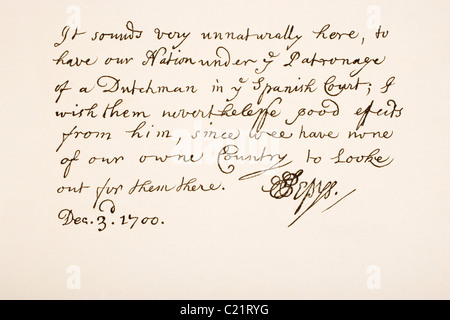 It sounds very unnaturally here, to
have our Nation under yͤ Patronage
of a Dutchman in yͤ Spanish Court; I
wish them neverthelesse good efects
from him, since wee have none
of our owne Country to Looke
out for them there.
SPepys.
Dec. 3.ᵈ 1700.
alamy
alamy stock photo
C21RYG
www.alamy.com